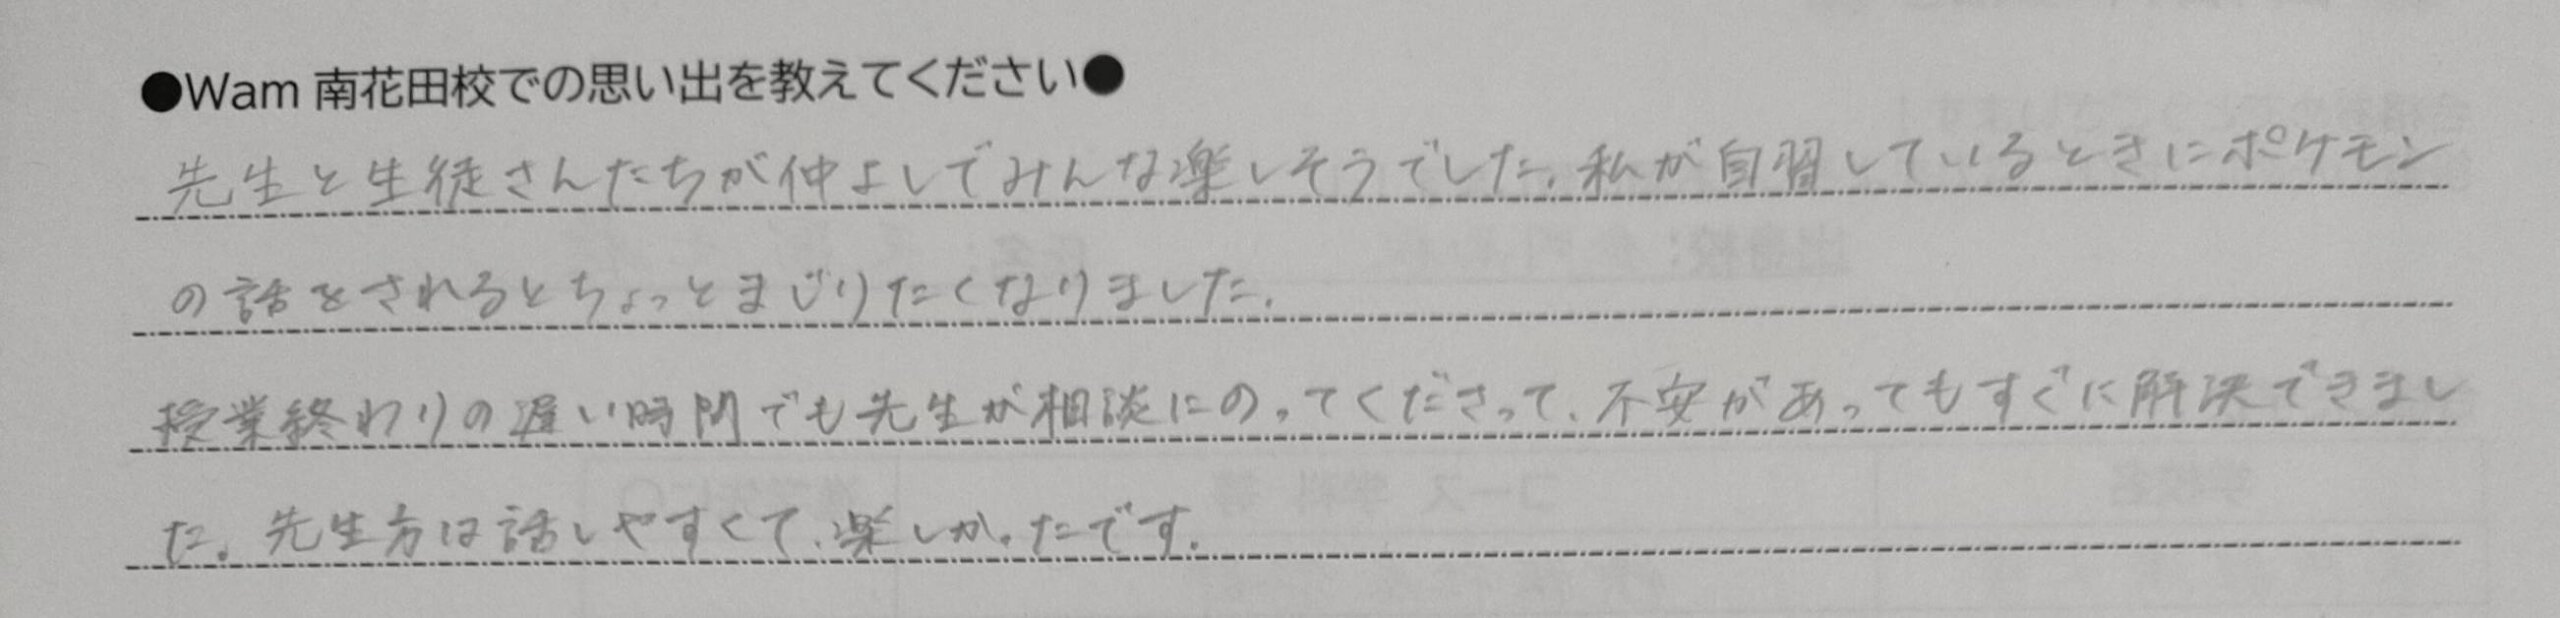 ●Wam 南花田校での思い出を教えてください●
先生と生徒さんたちが仲よしでみんな楽しそうでした。私が自習しているときにポケモン
の話をされるとちょっとまじりたくなりました。
授業終わりの遅い時間でも先生が相談にのってくださって、不安があってもすぐに解決できまし
た。先生方は話しやすくて、楽しかったです。